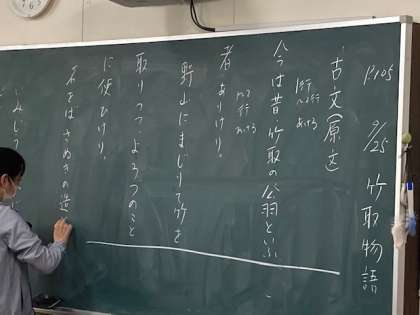 P.105 9/25 竹取物語
古文(原文)
1行
あける
今は昔竹取の翁といふ
者ありけり。
1行
あける
野山にまじりて竹を
取りつつ、よろづのこと
に使ひけり。
名をば、さぬきの造